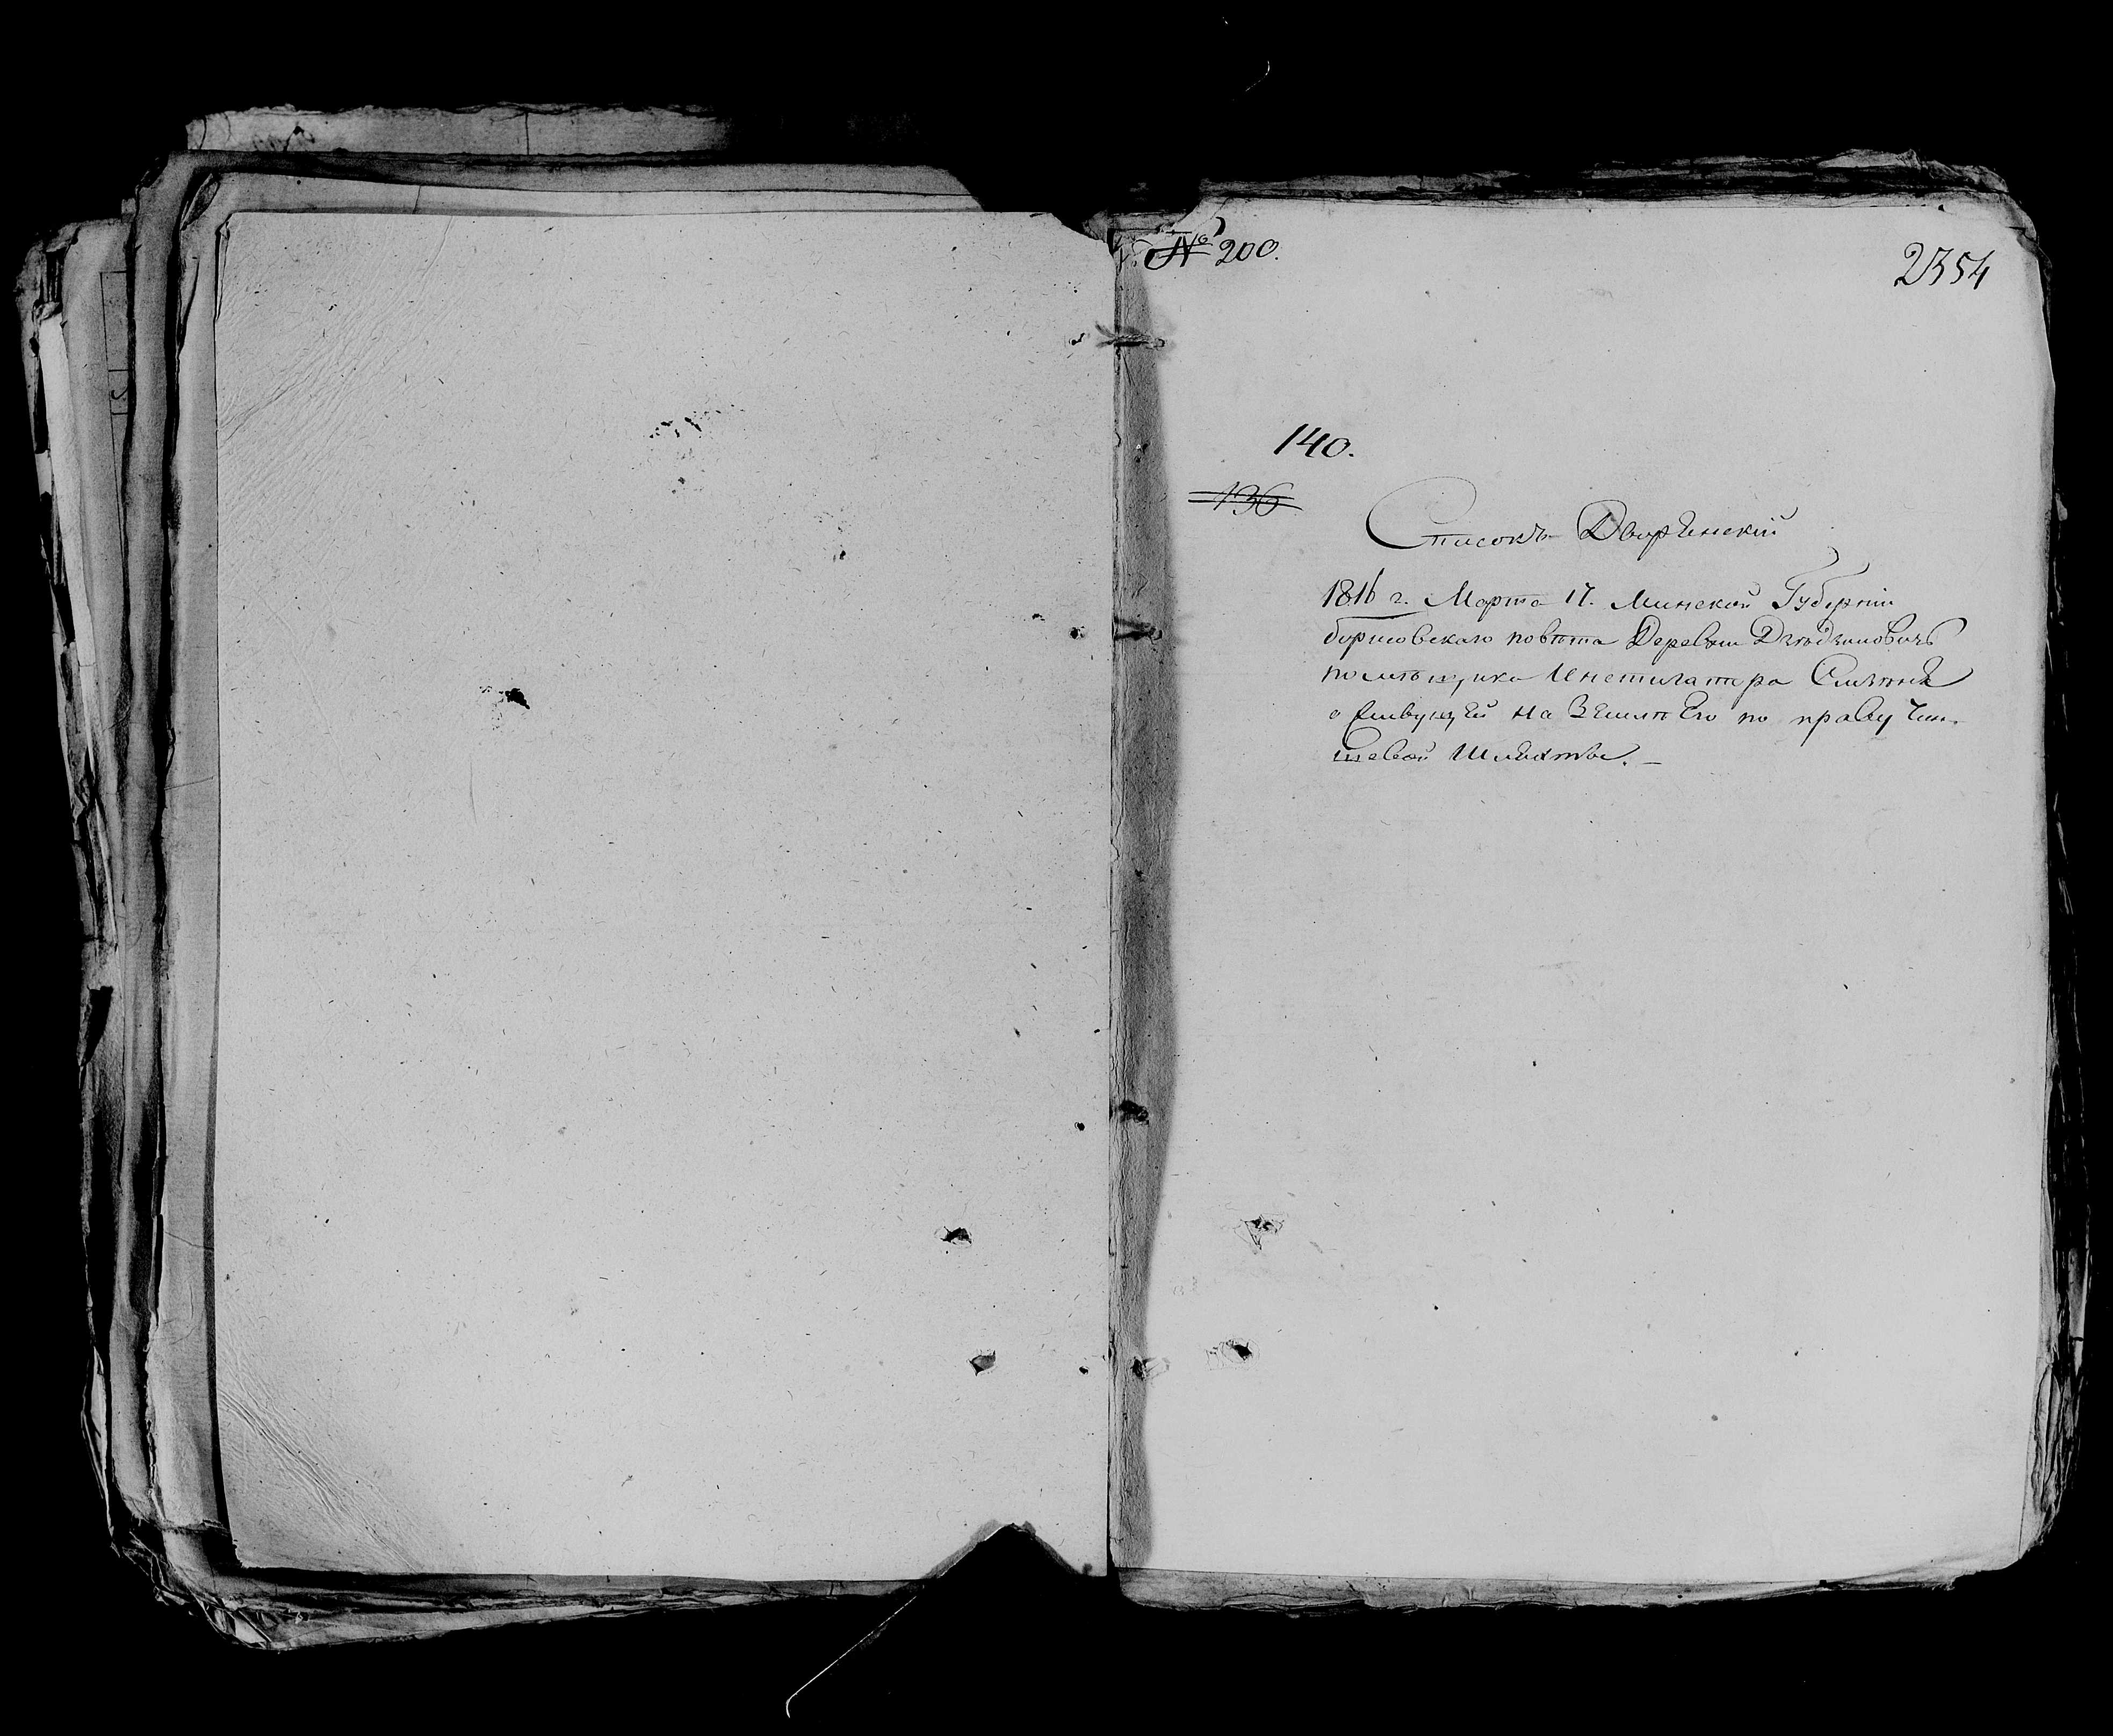 № 200.
2354
140.
136
Списокъ Дворянский
1816 г. Марта 17. Минской Губернии
борисовскаго повѣта Деревни
помѣщика Инстигатора
о живущей на Землѣ Его по праву чин-
шевой Шляхты. –